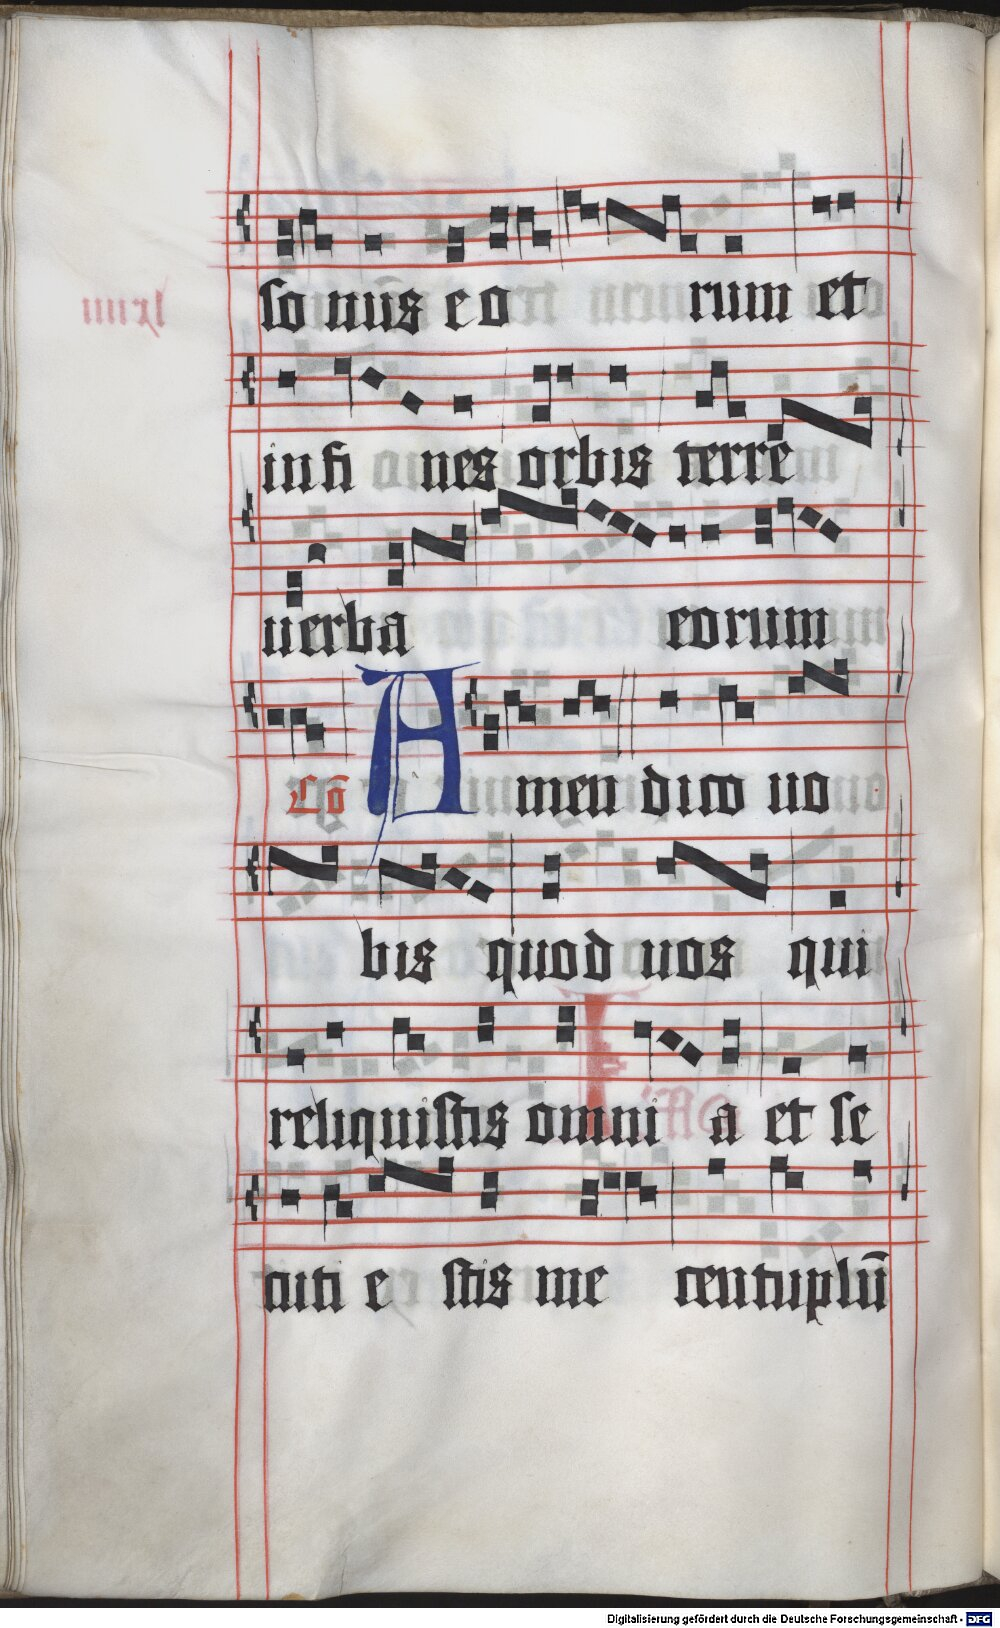 so nus e o rum et
in fi nes orbis terre
uerba eorum
Cō Amen dico uo
bis quod uos qui
reliquistis omni a et se
cuti e stis me centuplū
Digitalisierung gefördert durch die Deutsche Forschungsgemeinschaft - DFG